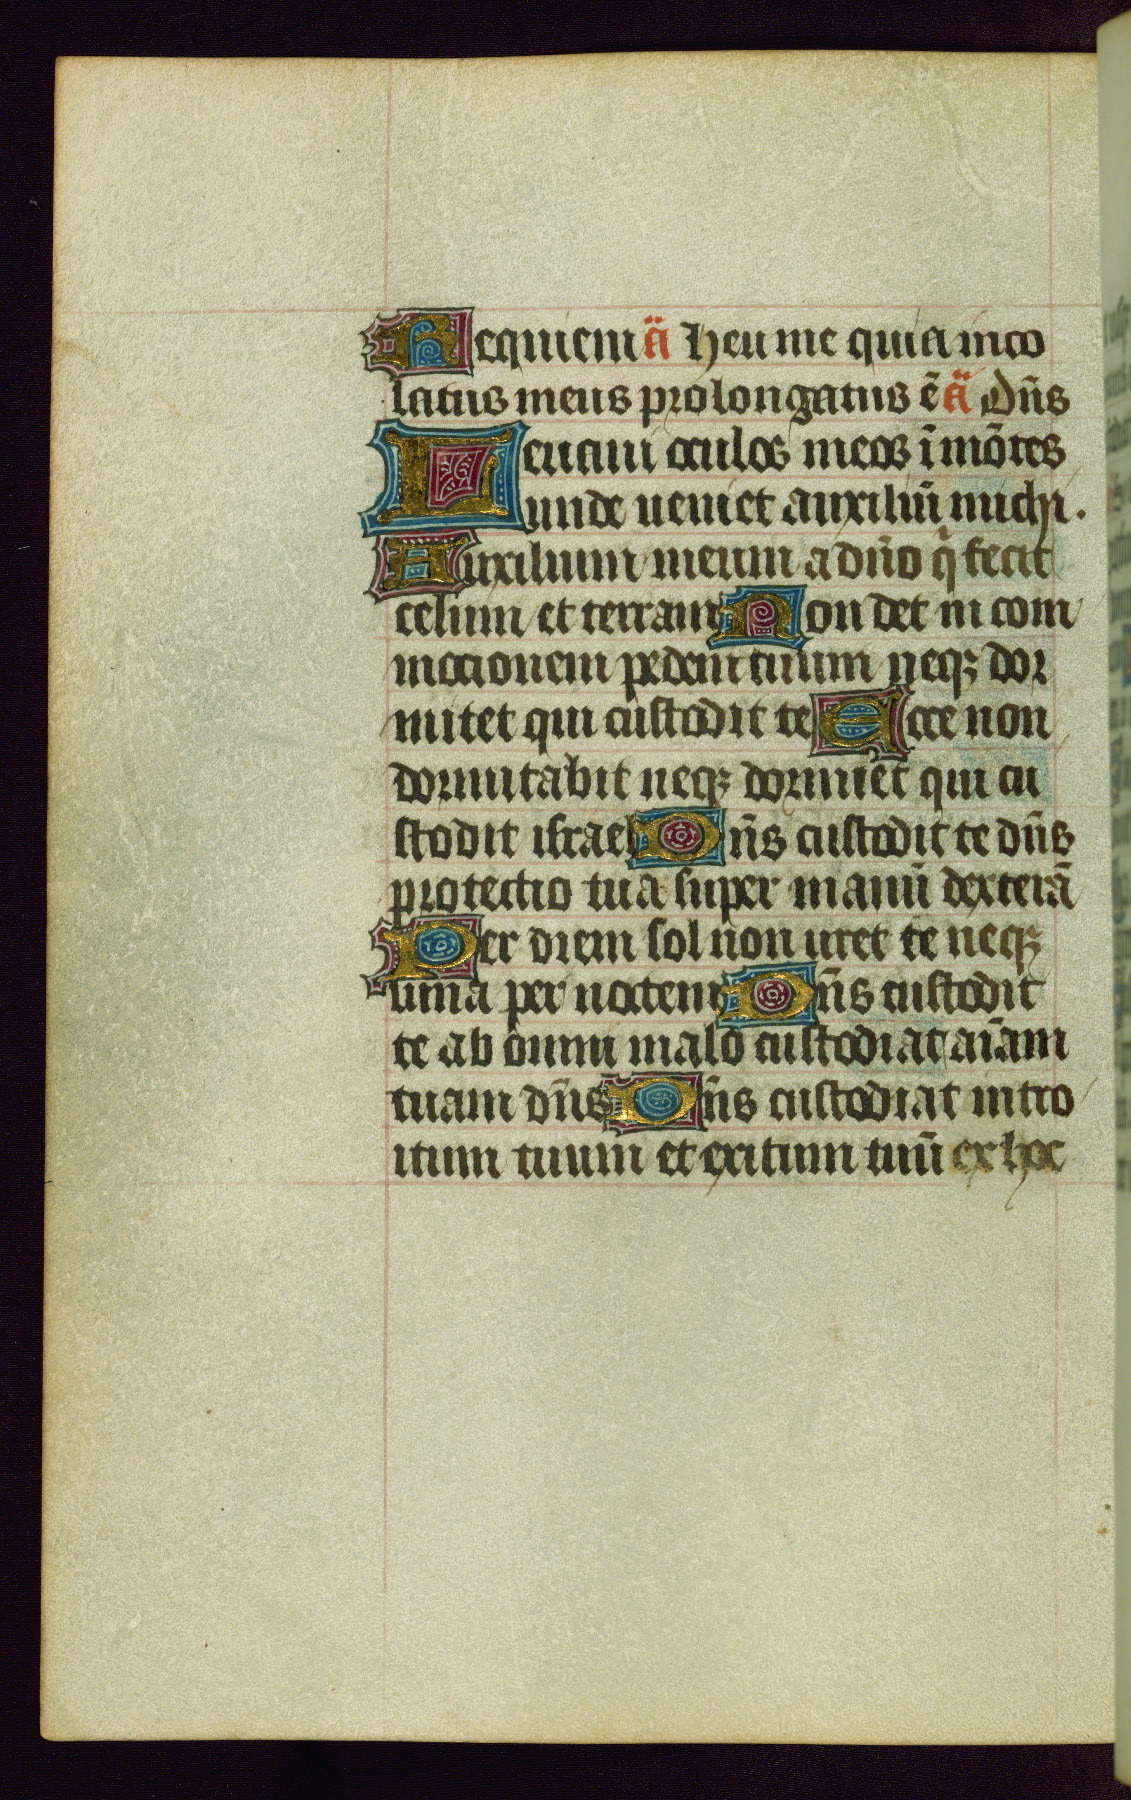 Requiem ā Heu me quia inco
latus meus prolongatus ē ā Dn̄s
Leuaui oculos meos ī mōtes
unde ueniet auxiliū michi.
Auxilium meum a dn̄o q̄ fecit
celum et terram Non det in com
mocionem pedem tuum neqꝫ dor
mitet qui custodit te Ecce non
dormitabit neqꝫ dormiet qui cu
stodit israel Dn̄s custodit te dn̄s
protectio tua super manū dexterā
Per diem sol non uret te neqꝫ
luna per noctem Dn̄s custodit
te ab omni malo custodiat aīam
tuam dn̄s Dn̄s custodiat intro
itum tuum et exitum tuū ex hoc